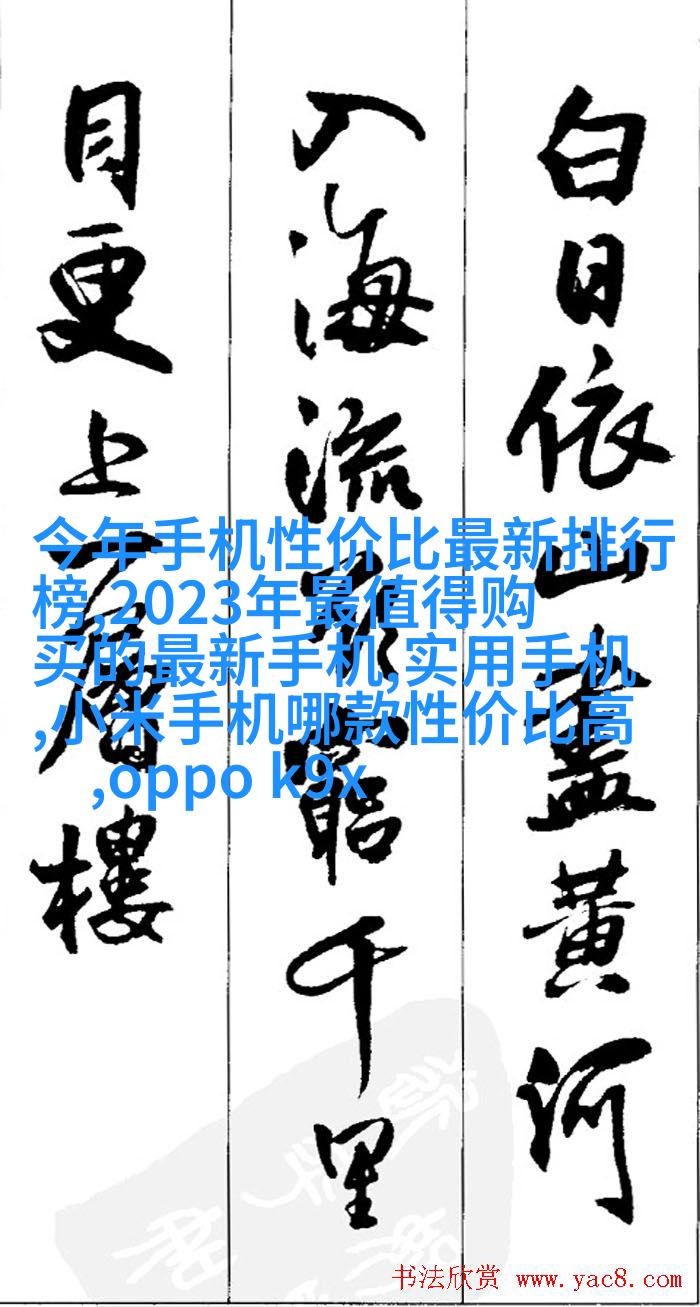 白日依山盡黄河
入海流欲窮千里
目更上一層樓
今年手机性价比最新排行
榜,2023年最值得购
买的最新手机,实用手机
,小米手机哪款性价比高
,oppo k9x
书法欣赏 www.yac8.com